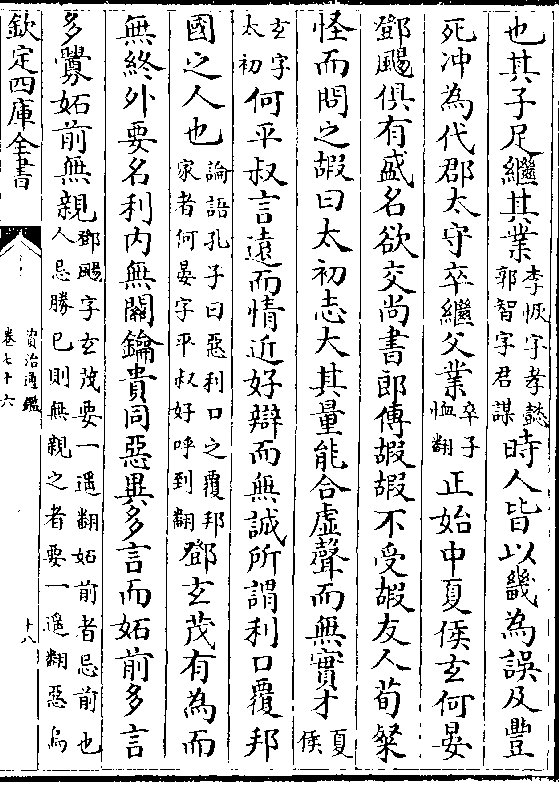 也其子足繼其業李恢字孝懿郭智字君謀時人皆以畿為誤及豐
死冲為代郡太守卒繼父業卒子恤翻正始中夏侯玄何晏
鄧颺俱有盛名欲交尚書郎傅嘏嘏不受嘏友人荀粲
怪而問之嘏曰太初志大其量能合虛聲而無實才夏侯
玄字太初何平叔言遠而情近好辯而無誠所謂利口覆邦
國之人也論語孔子曰惡利口之覆邦家者何晏字平叔好呼到翻鄧玄茂有為而
無終外要名利內無關鑰貴同惡異多言而妬前多言
多釁妬前無親鄧颺字玄茂要一遥翻妬前者忌前也人忌勝己則無親之者要一遥翻惡烏
欽定四庫全書
資治通鑑
卷七十六
十八